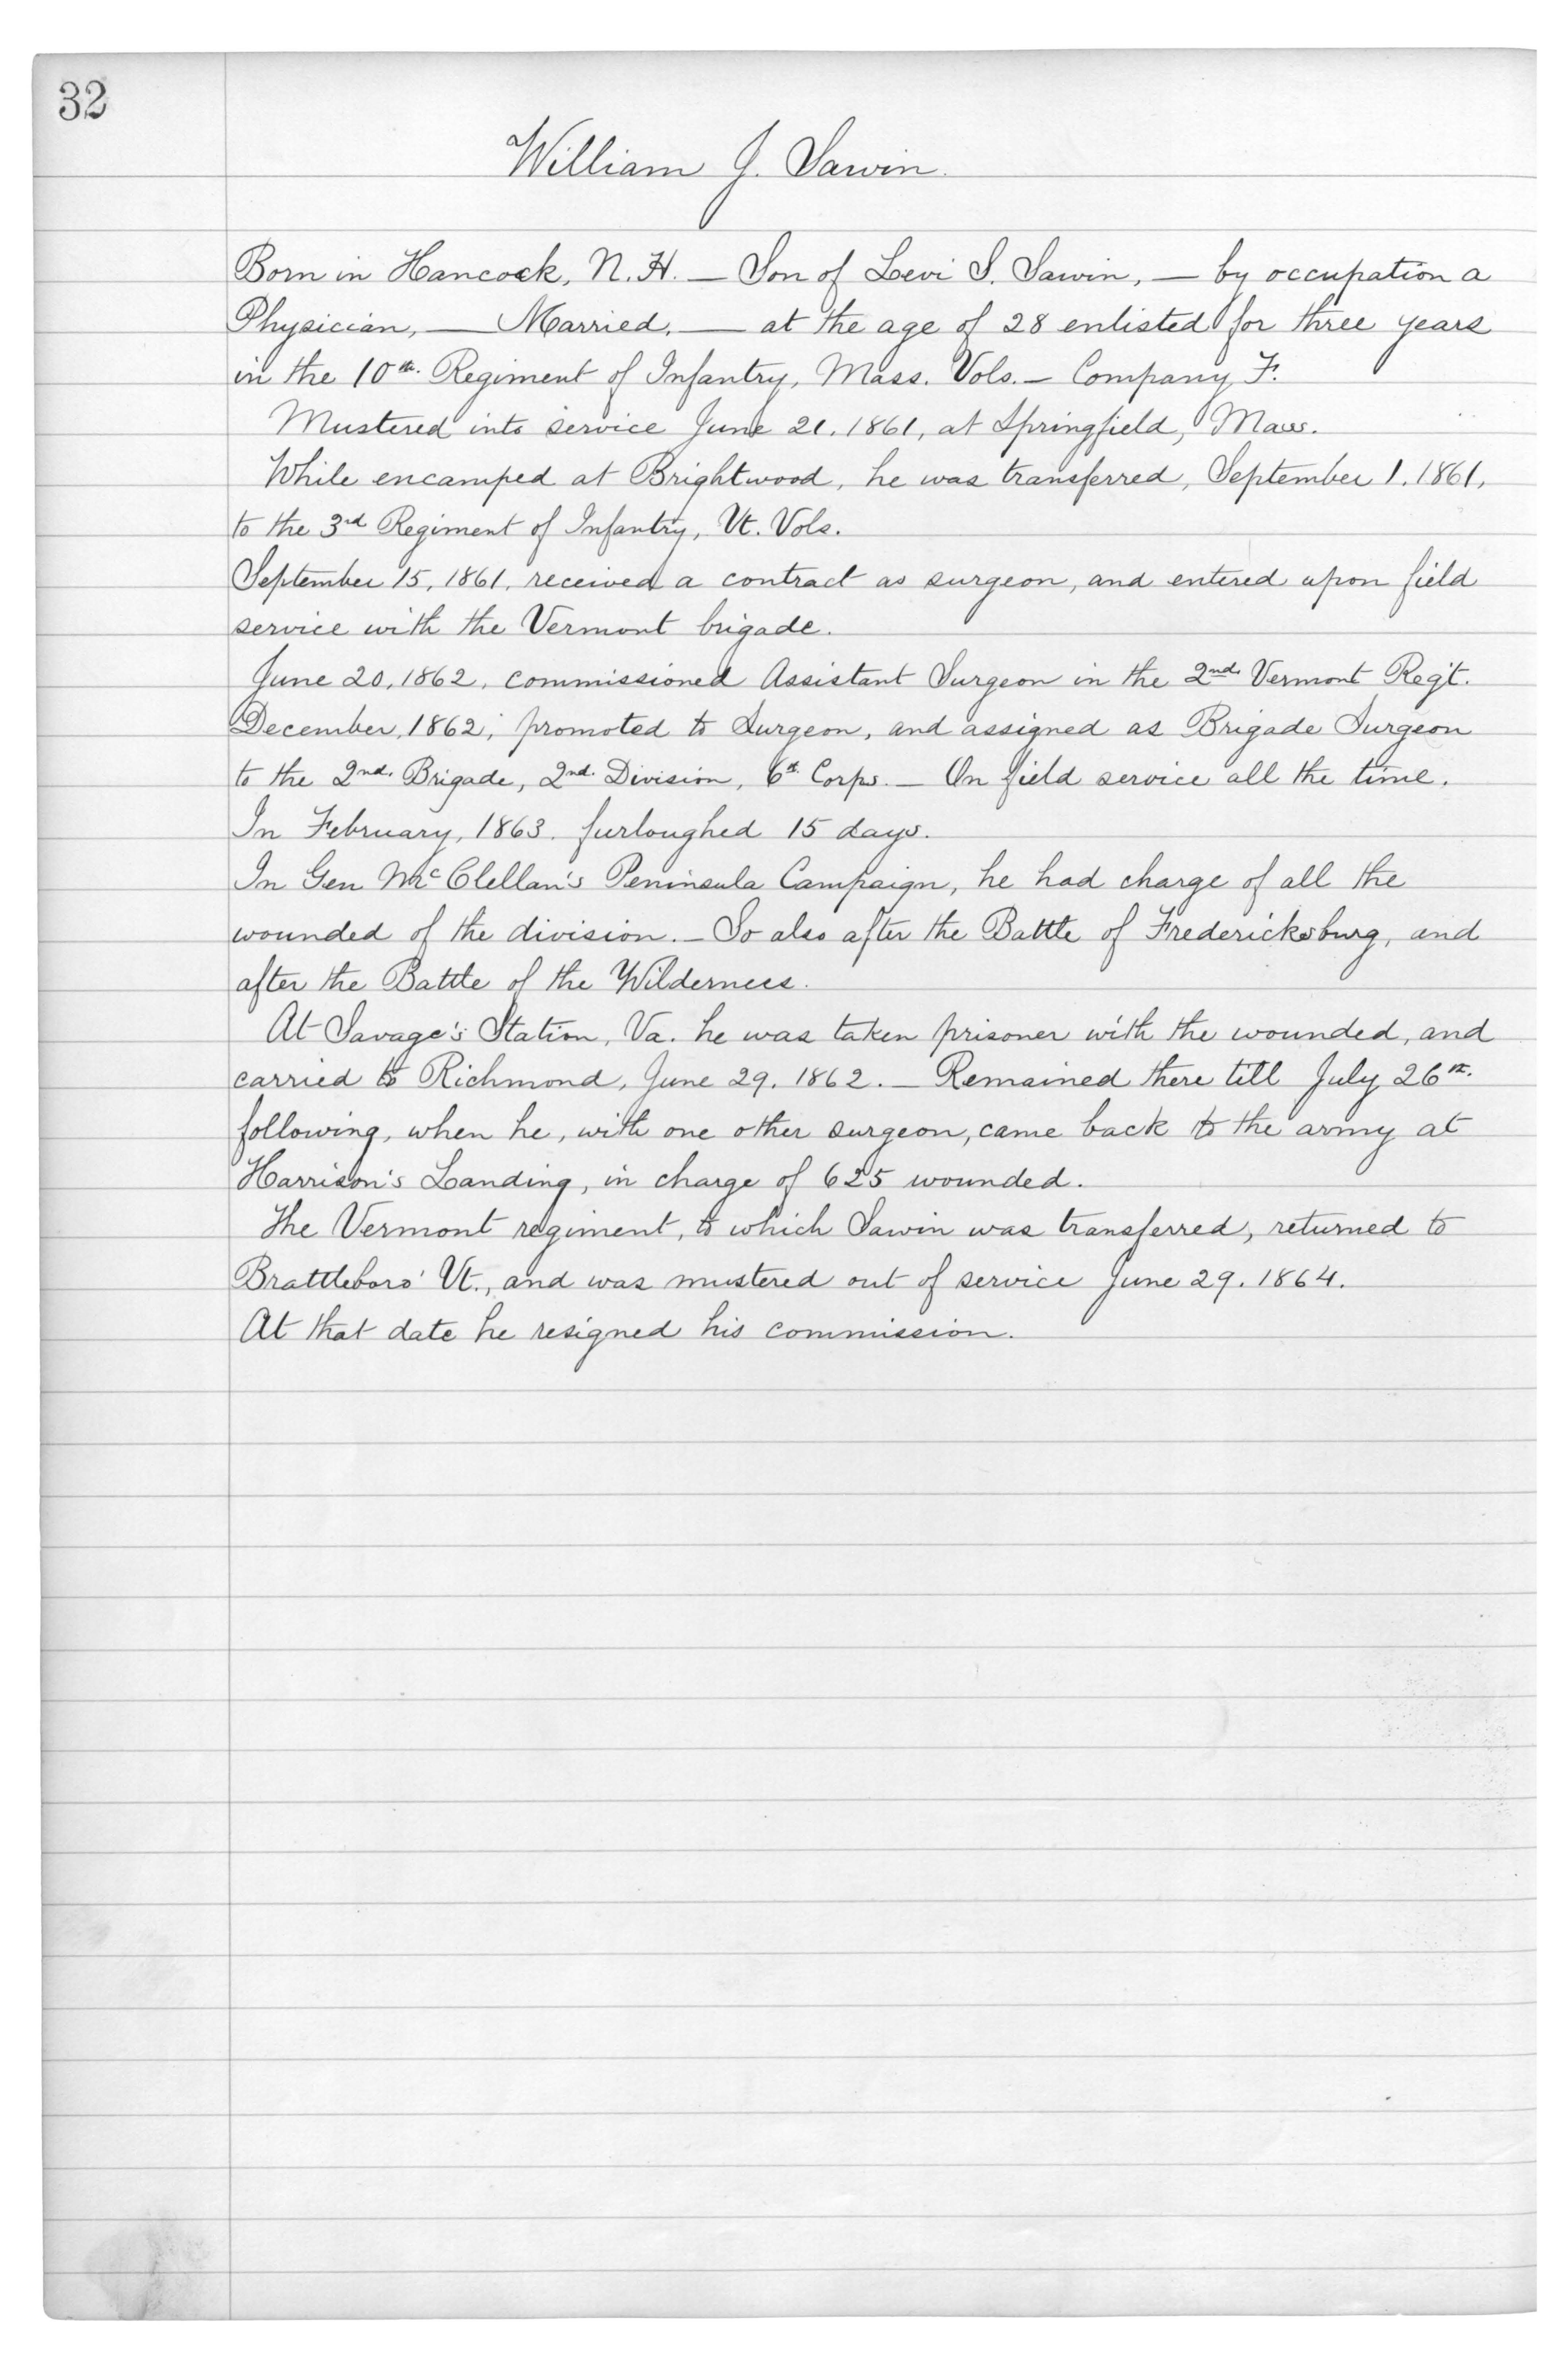 32
William J. Sawin.
Born in Hancock, N. H. — Son of Levi S. Sawin, — by occupation a
Physician, — Married, — at the age of 28 enlisted for three years
in the 10th. Regiment of Infantry, Mass. Vols. — Company F.
Mustered into service June 21, 1861, at Springfield, Mass.
While encamped at Brightwood, he was transferred, September 1, 1861,
to the 3rd Regiment of Infantry, Vt. Vols.
September 15, 1861, received a contract as surgeon, and entered upon field
service with the Vermont brigade.
June 20, 1862, commissioned Assistant Surgeon in the 2nd. Vermont Reg't.
December, 1862, promoted to Surgeon, and assigned as Brigade Surgeon
to the 2nd. Brigade, 2nd. Division, 6th Corps. — On field service all the time.
In February, 1863. furloughed 15 days.
In Gen McClellan's Peninsula Campaign, he had charge of all the
wounded of the division. — So also after the Battle of Fredericksburg, and
after the Battle of the Wilderness.
At Savage's Station, Va. he was taken prisoner with the wounded, and
carried to Richmond, June 29, 1862. — Remained there till July 26th.
following, when he, with one other surgeon, came back to the army at
Harrison's Landing, in charge of 625 wounded.
The Vermont regiment, to which Sawin was transferred, returned to
Brattleboro' Vt., and was mustered out of service June 29, 1864.
At that date he resigned his commission.